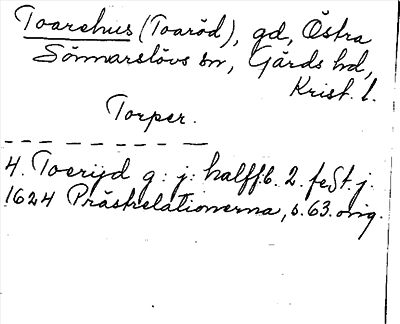 Toarehus (Toaröd), gd, Östra
Sönnarslövs sn, Gärds hd,
Krist. l.
Torper.
4. Toerijd g: j: halff.b. 2. feSt. j.
1624 Prästrelationerna, s. 63. orig.